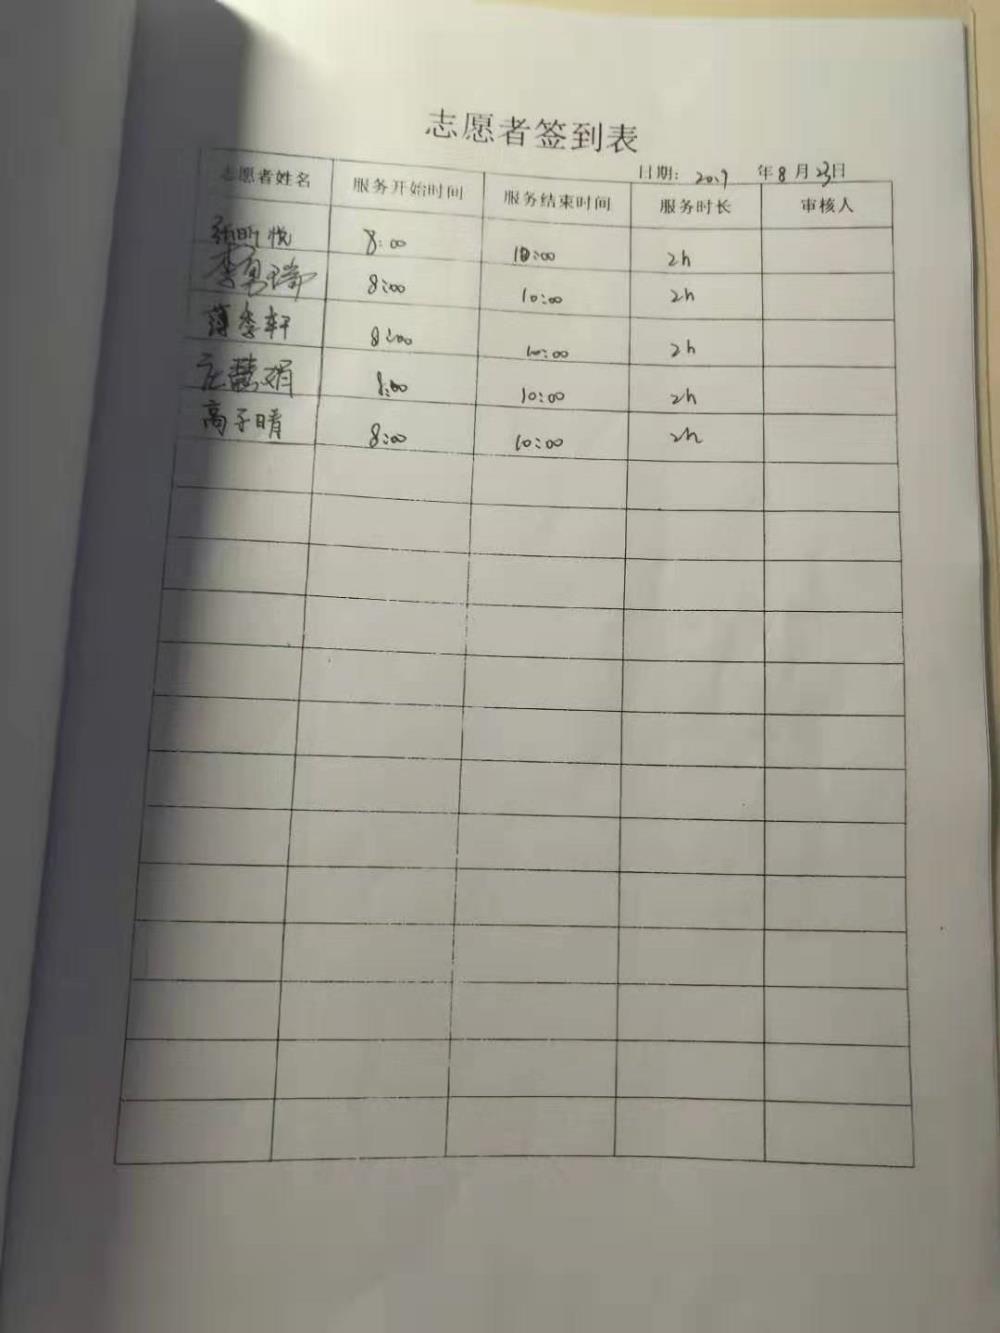 志愿者签到表
日期: 2019 年8月23日
志愿者姓名 服务开始时间 服务结束时间 服务时长 审核人
张昕悦 8:00 10:00 2h
8:00 10:00 2h
薄李轩 8:00 10:00 2h
庄慧娟 8:00 10:00 2h
高子晴 8:00 10:00 2h